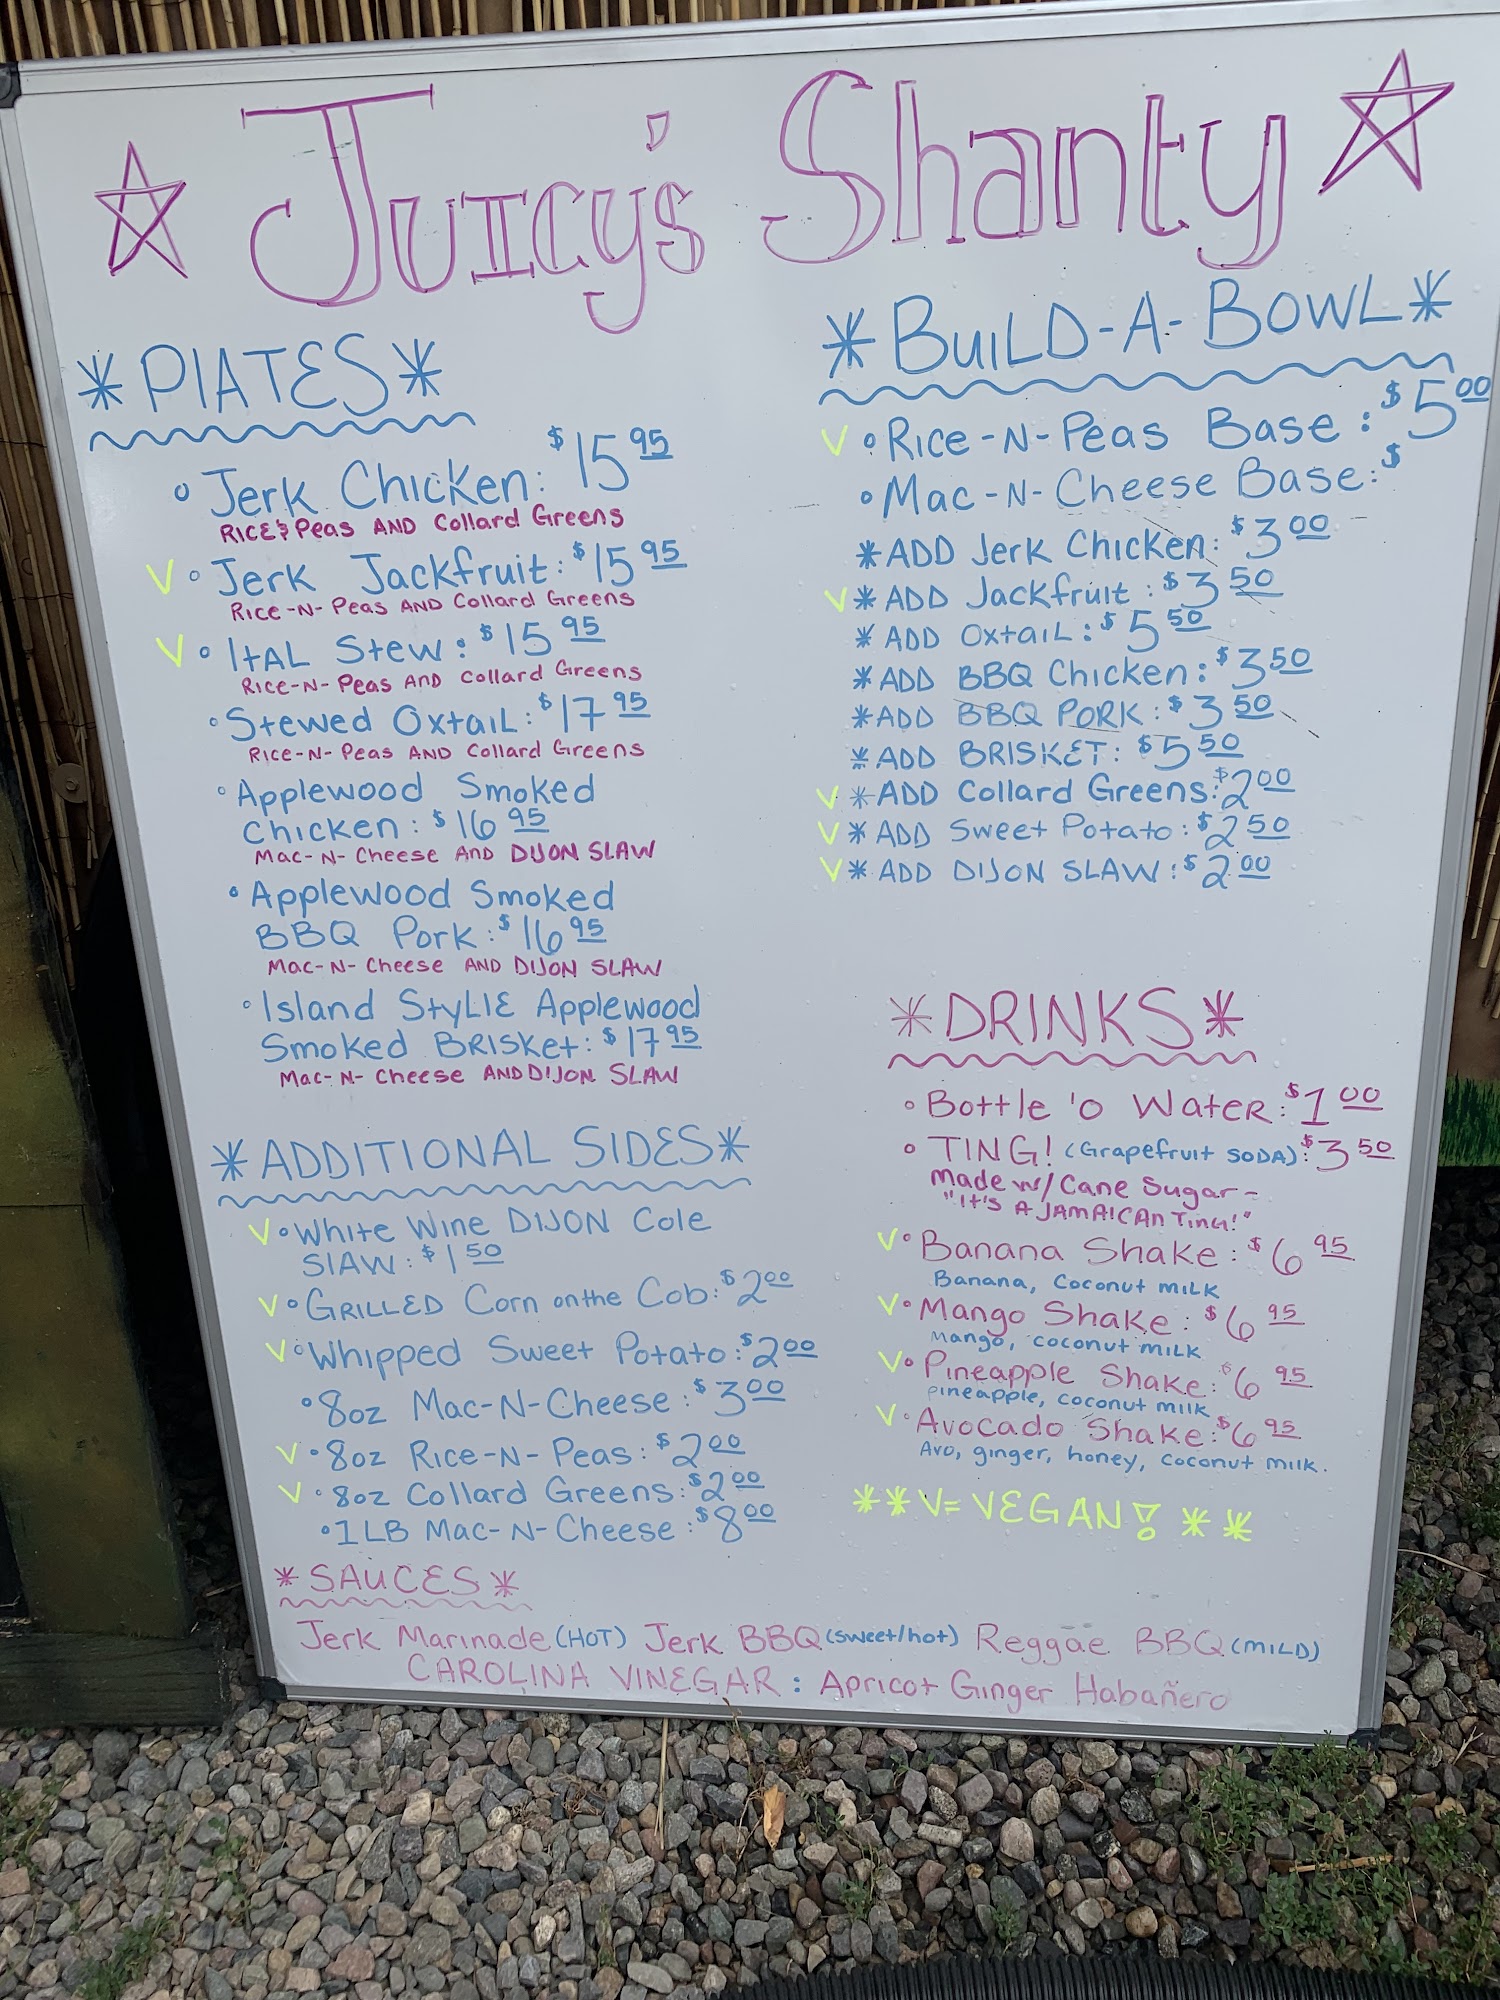 ☆ Juicy's Shanty ☆
*PlATES*
• Jerk Chicken: $15.95
RICE & Peas AND Collard Greens
V • Jerk Jackfruit: $15.95
Rice-N-Peas AND Collard Greens
V • Ital Stew: $15.95
Rice-N-Peas AND Collard Greens
• Stewed Oxtail: $17.95
Rice-N-Peas AND Collard Greens
• Applewood Smoked
Chicken: $16.95
Mac-N-Cheese AND DIJON SLAW
• Applewood Smoked
BBQ Pork: $16.95
Mac-N-Cheese AND DIJON SLAW
• Island StyLlE Applewood
Smoked BRISket: $17.95
Mac-N-Cheese AND DIJON SLAW
*ADDITIONAL SIDES*
V • White Wine DIJON Cole
SlAW: $1.50
V • GRILLED Corn on the Cob: $2.00
V • Whipped Sweet Potato: $2.00
• 8oz Mac-N-Cheese: $3.00
V • 8oz Rice-N-Peas: $2.00
V • 8oz Collard Greens: $2.00
• 1LB Mac-N-Cheese: $8.00
*BuiLD-A-BOWL*
V • Rice-N-Peas Base: $5.00
• Mac-N-Cheese Base: $
*ADD Jerk Chicken: $3.00
V *ADD Jackfruit: $3.50
*ADD Oxtail: $5.50
*ADD BBQ Chicken: $3.50
*ADD BBQ PORK: $3.50
*ADD BRISKET: $5.50
V *ADD Collard Greens: $2.00
V *ADD Sweet Potato: $2.50
V *ADD DIJON SLAW: $2.00
*DRINKS*
• Bottle 'o Water: $1.00
• TING! (Grapefruit SODA): $3.50
Made w/ Cane Sugar-
"It's A JAMAICAN Ting!"
V • Banana Shake: $6.95
Banana, Coconut milk
V • Mango Shake: $6.95
Mango, coconut milk
V • Pineapple Shake: $6.95
pineapple, coconut milk
V • Avocado Shake: $6.95
Avo, ginger, honey, coconut milk.
**V=VEGAN!**
*SAUCES*
Jerk Marinade (HOT) Jerk BBQ (sweet/hot) Reggae BBQ (MILD)
CAROLINA VINEGAR: Apricot Ginger Habañero